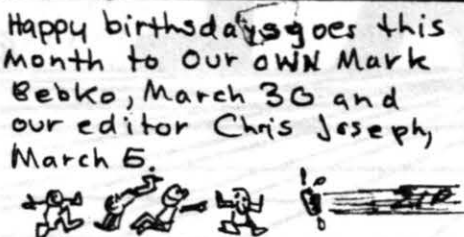 Happy birthsdaysgoes this
month to Our OWN Mark
Bebko, March 30 and
our editor Chris Joseph,
March 5.